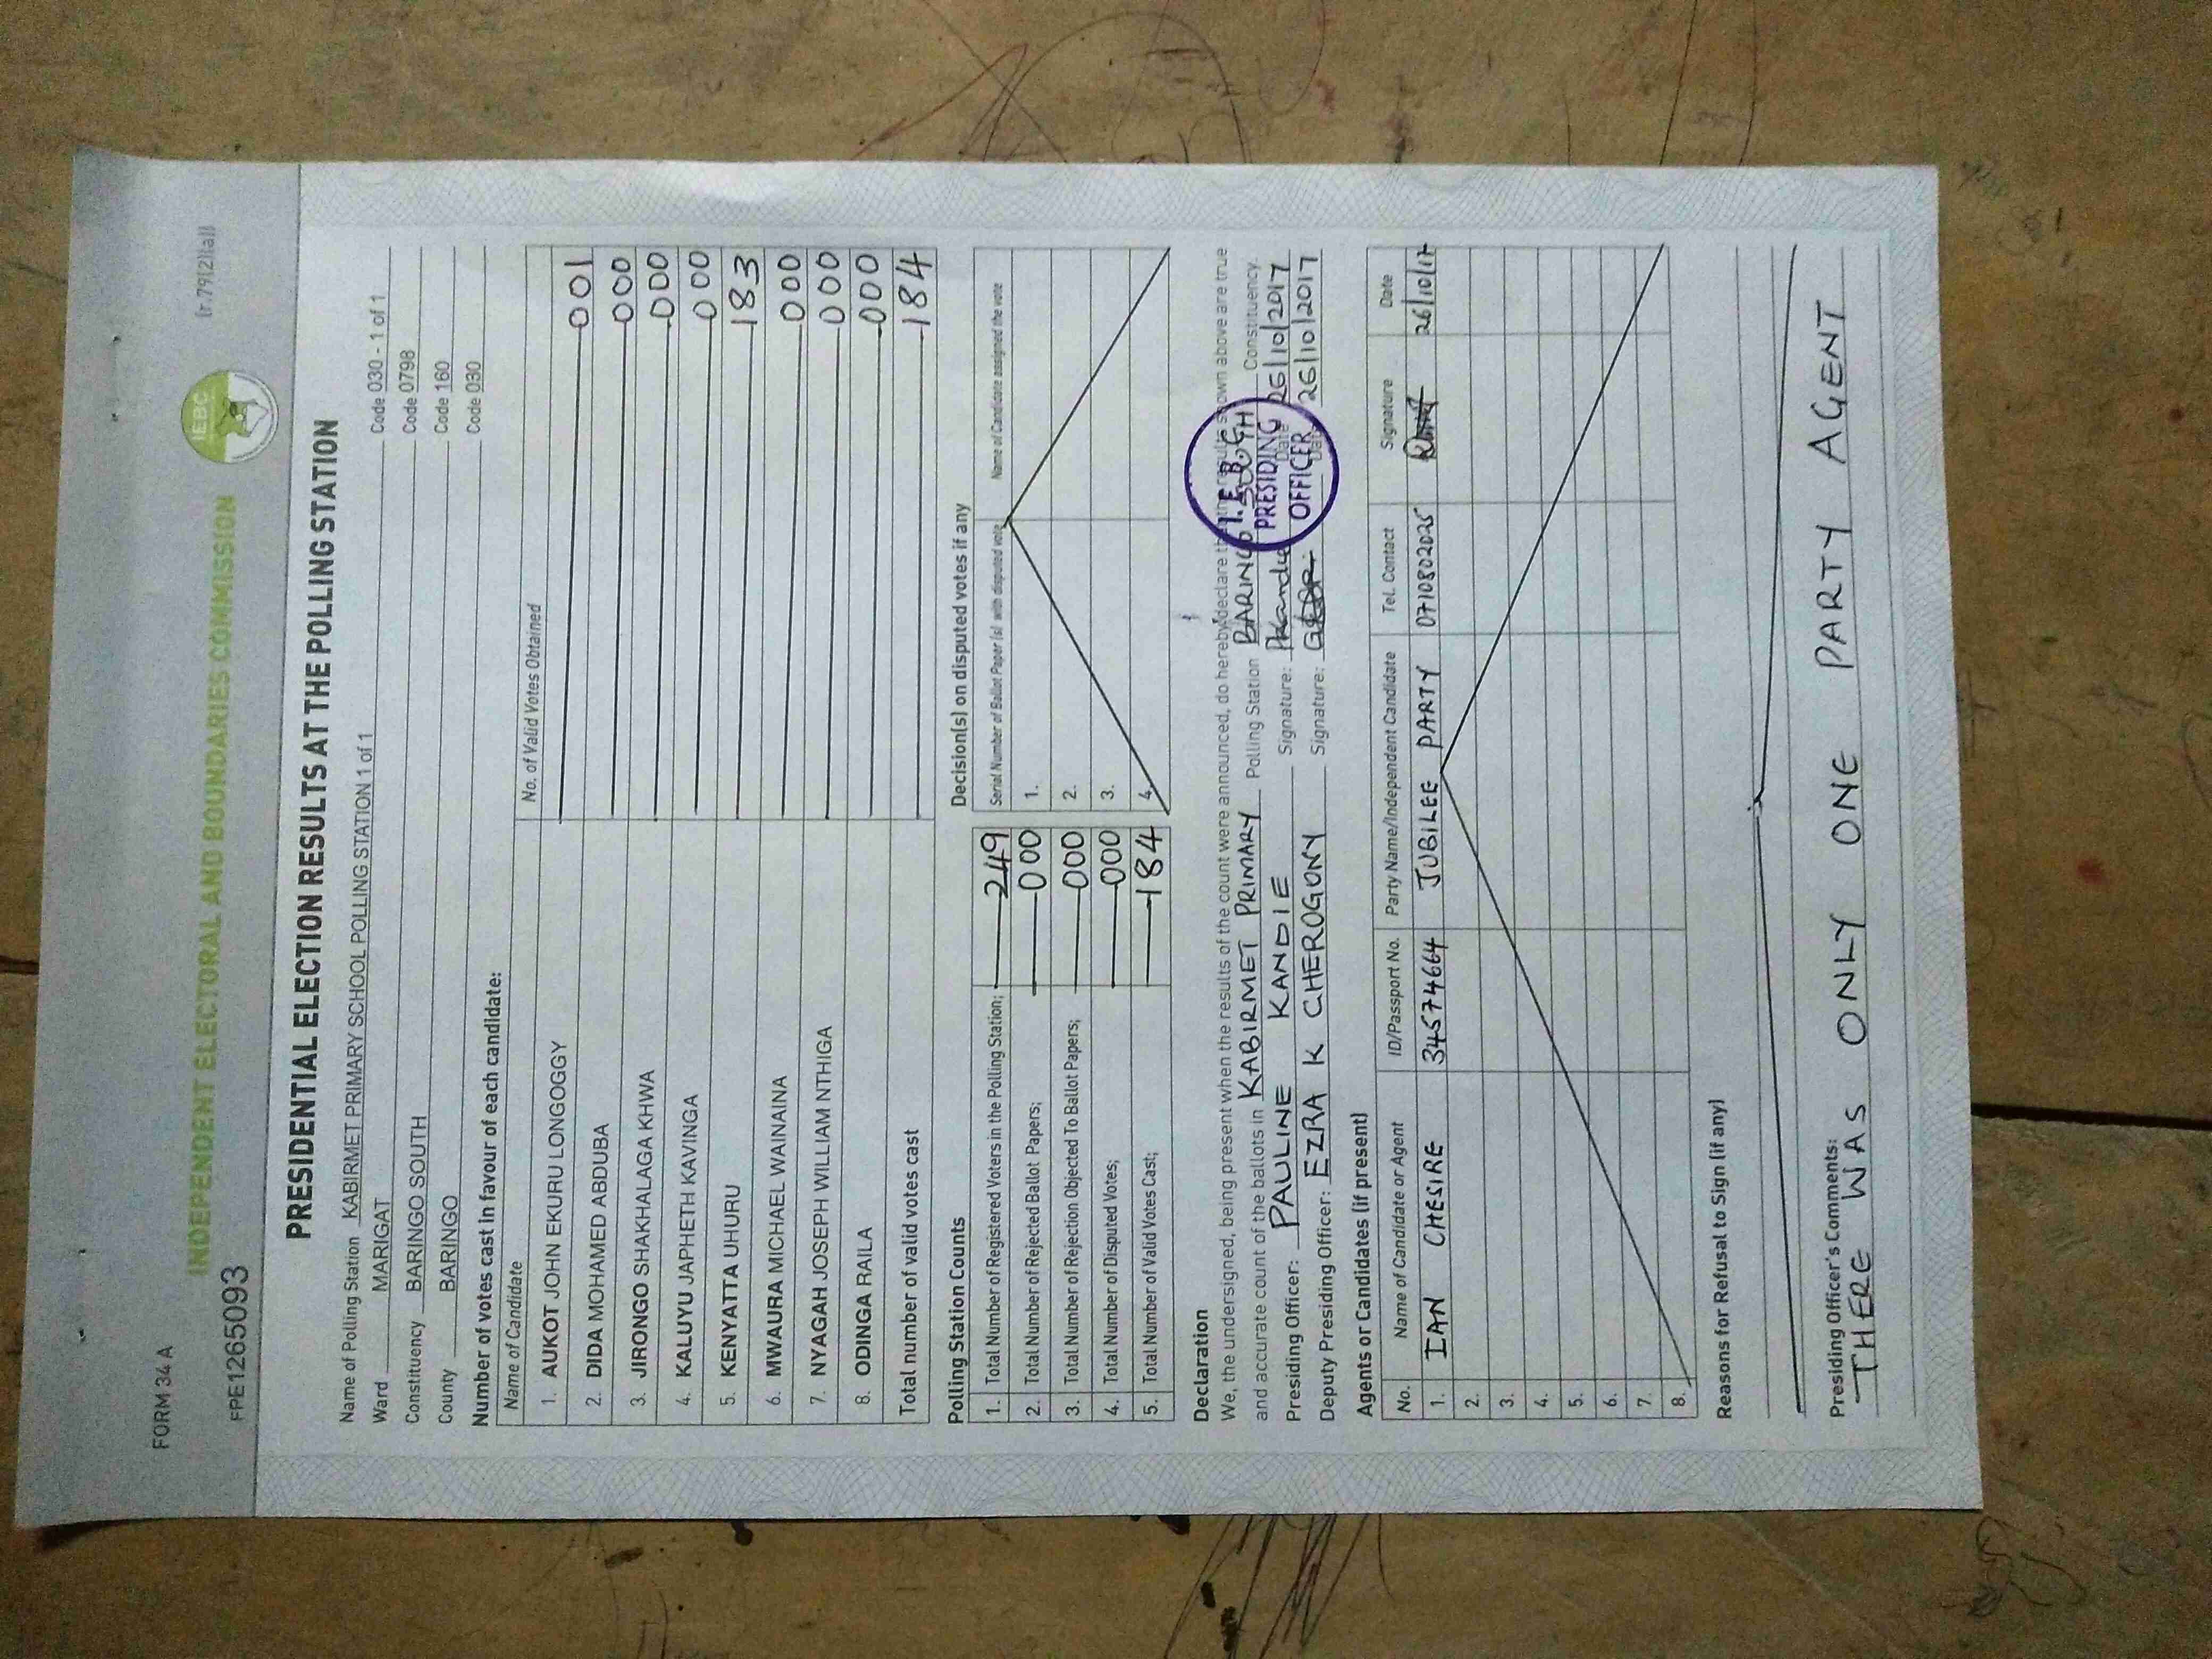 FORM 34 A
(r.79(2)(a))
INDEPENDENT ELECTORAL AND BOUNDARIES COMMISSION
IEBC
FPE1265093
PRESIDENTIAL ELECTION RESULTS AT THE POLLING STATION
Name of Polling Station KABIRMET PRIMARY SCHOOL POLLING STATION 1 of 1 Code 030 - 1 of 1
Ward MARIGAT Code 0798
Constituency BARINGO SOUTH Code 160
County BARINGO Code 030
Number of votes cast in favour of each candidate:
Name of Candidate No. of Valid Votes Obtained
1. AUKOT JOHN EKURU LONGOGGY 001
2. DIDA MOHAMED ABDUBA 000
3. JIRONGO SHAKHALAGA KHWA 000
4. KALUYU JAPHETH KAVINGA 000
5. KENYATTA UHURU 183
6. MWAURA MICHAEL WAINAINA 000
7. NYAGAH JOSEPH WILLIAM NTHIGA 000
8. ODINGA RAILA 000
Total number of valid votes cast 184
Polling Station Counts
1. Total Number of Registered Voters in the Polling Station; 249
2. Total Number of Rejected Ballot Papers; 000
3. Total Number of Rejection Objected To Ballot Papers; 000
4. Total Number of Disputed Votes; 000
5. Total Number of Valid Votes Cast; 184
Decision(s) on disputed votes if any
Serial Number of Ballot Paper (s) with disputed vote Name of Candidate assigned the vote
1.
2.
3.
4.
Declaration
We, the undersigned, being present when the results of the count were announced, do hereby declare that the results shown above are true
and accurate count of the ballots in KABIRMET PRIMARY Polling Station BARINGO SOUTH Constituency.
Presiding Officer: PAULINE KANDIE Signature: Pkandie Date 26/10/2017
Deputy Presiding Officer: EZRA K CHEROGONY Signature: Date 26/10/2017
I.E.B.C
PRESIDING
OFFICER
Agents or Candidates (if present)
No. Name of Candidate or Agent ID/Passport No. Party Name/Independent Candidate Tel. Contact Signature Date
1. IAN CHESIRE 34574664 JUBILEE PARTY 0710802025 26/10/17
2.
3.
4.
5.
6.
7.
8.
Reasons for Refusal to Sign (if any)
Presiding Officer's Comments:
THERE WAS ONLY ONE PARTY AGENT